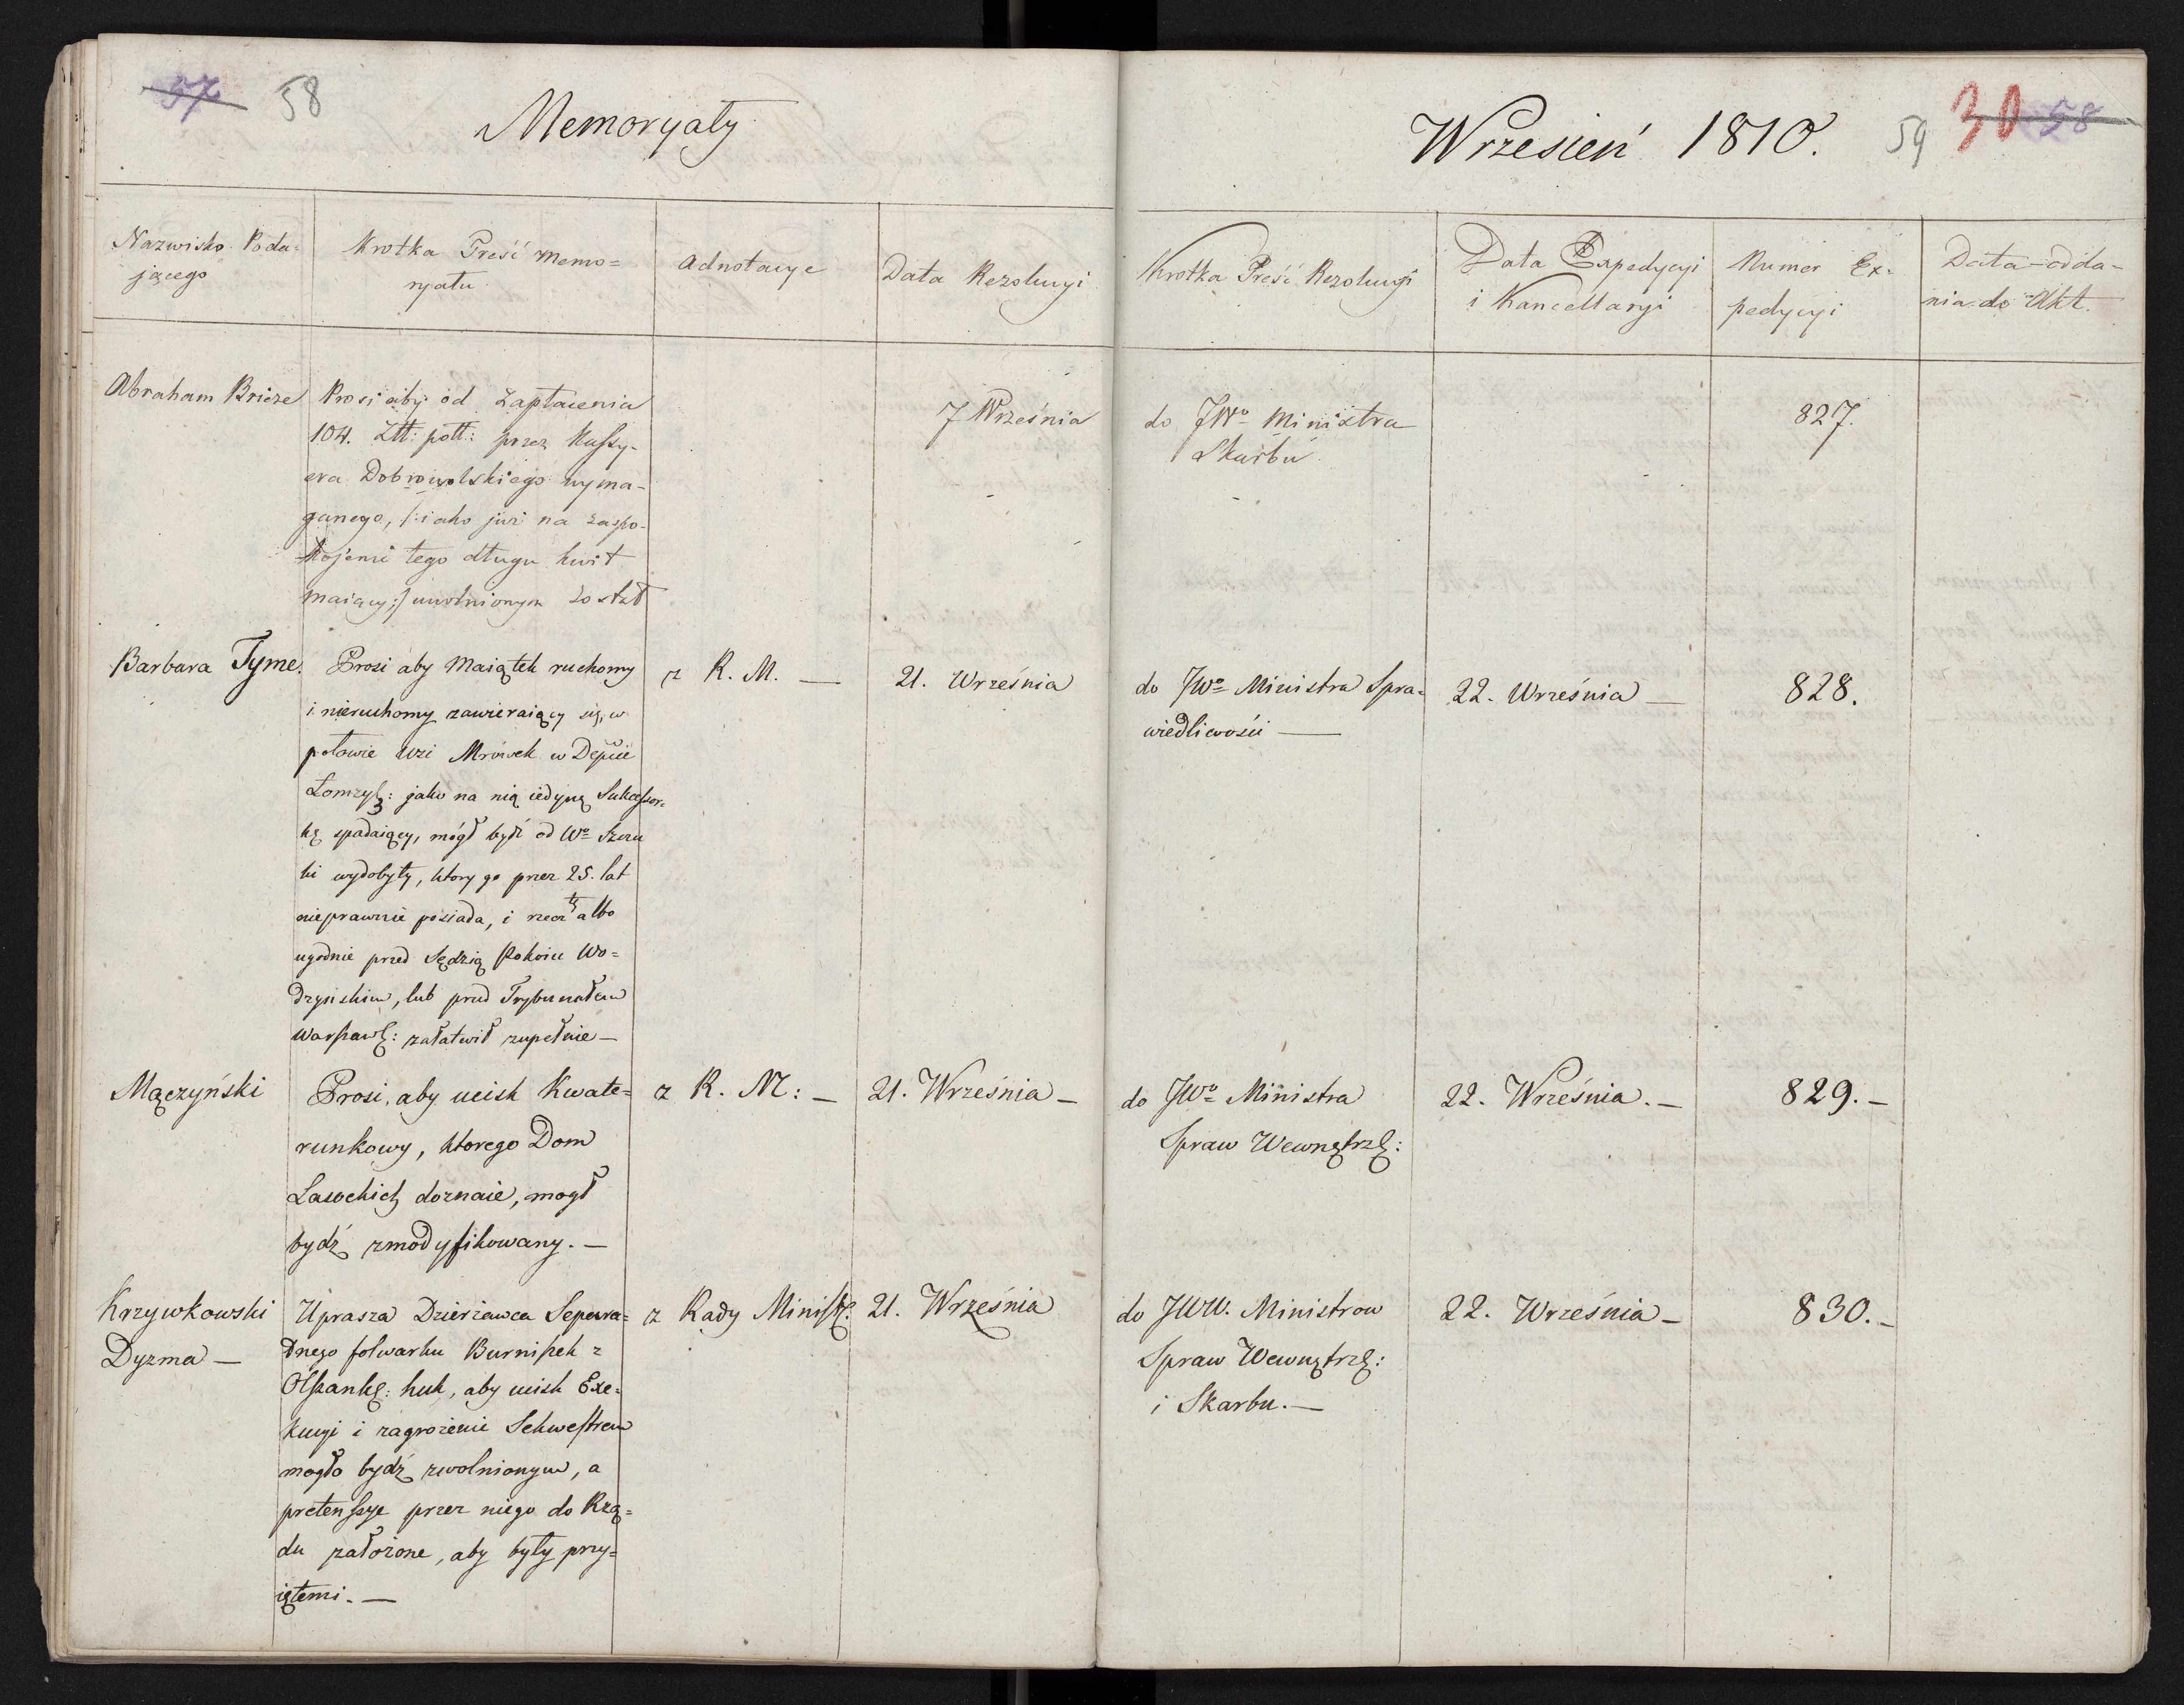 57 58
Memoryały
Wrzesień 1810.
59 30 58
Nazwisko Poda=
jącego
Krotka Treść Memo=
ryału
Adnotacye
Data Rezolucyi
Krotka Treść Rezolucyi
Data Expedycyi
i Kancellaryi
Numer Ex=
pedycyi
Data odda=
nia do Akt.
Abraham Brieze
Prosi aby od Zapłacenia
104. Złł: poll: przez Kassy-
era Dobrowolskiego wyma-
ganego, /: iako już na zaspo-
kojenie tego długu kwit
maiący :/ uwolnionym został
7 Września
do JWo Ministra
Skarbu
827.
Barbara Tyme.
Prosi aby Maiątek ruchomy
i nieruchomy zawieraiący się, w
połowie wsi Mrówek w Depcie
Łomzys: jako na nią iedyną Sukcessor=
kę spadaiący, mógł bydź od Wo
ki wydobyty, ktory go przez 25. lat
nieprawnie posiada, i rzecz tę albo
ugodnie przed Sędzią Pokoiu Wo=
dzyńskim, lub przed Trybunałem
Warszaws: załatwił zupełnie —
z R. M. —
21. Września
do JWo Ministra Spra=
wiedliwości —
22. Września —
828.
Mączyński
Prosi, aby ucisk Kwate=
runkowy, ktorego Dom
Lasockich doznaie, mogł
bydź zmodyfikowany. —
z R. M: —
21. Września —
do JWo Ministra
Spraw Wewnętrz:
22. Września. —
829. —
Krzywkowski
Dyzma —
Uprasza Dzierzawca Separa=
dnego folwarku Burniszek z
Olszank: , aby ucisk Exe=
kucyi i zagrożenie Sekwestrem
mogło bydź zwolnionym, a
pretenssye przez niego do Rzą=
du założone, aby były przy=
iętemi. —
z Rady Minist:
21. Września
do JWW. Ministrow
Spraw Wewnętrz:
i Skarbu. —
22. Września —
830. —